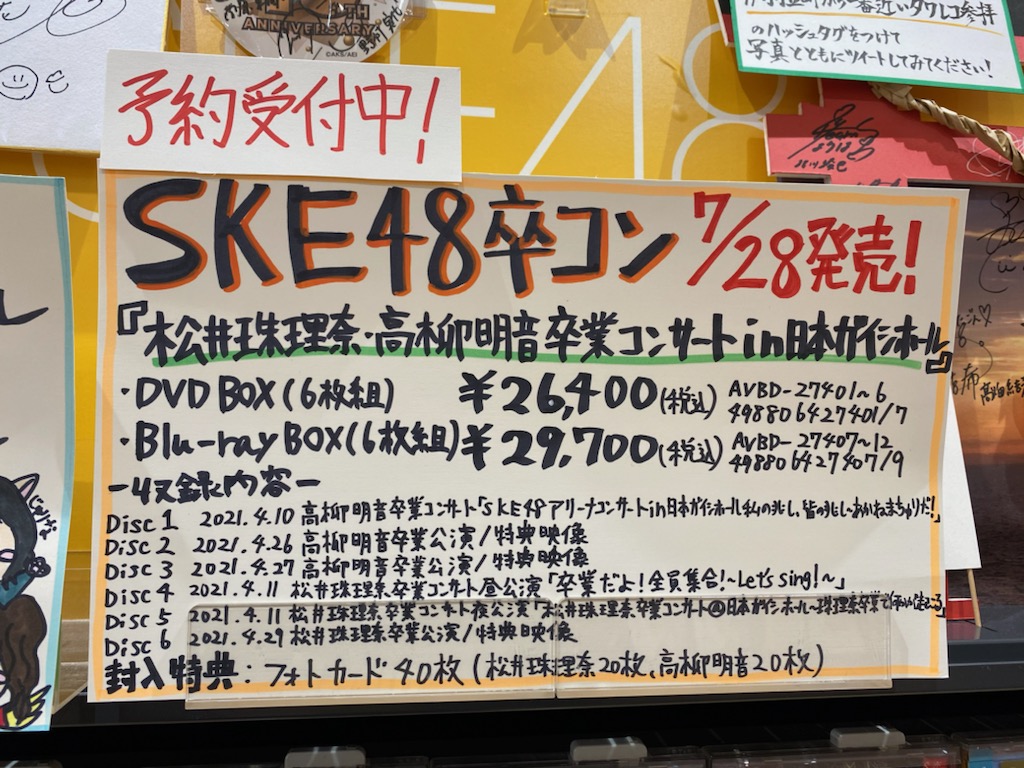 TH
ANNIVERSARY
©AKS/AEI
一番近いタワレコ参拝
のハッシュタグをつけて
写真とともにツイートしてみてください!
予約受付中!
SKE48卒コン 7/28発売!
『松井珠理奈・高柳明音卒業コンサートin日本ガイシホール』
・DVD BOX(6枚組) ¥26,400(税込) AVBD-27401~6
4988064274017
・Blu-ray BOX(6枚組) ¥29,700(税込) AVBD-27407~12
4988064274079
-収録内容-
Disc 1 2021.4.10 高柳明音卒業コンサート「SKE48アリーナコンサートin日本ガイシホール 私の兆し、皆の兆し~あかねまちゅりだ!」
Disc 2 2021.4.26 高柳明音卒業公演/特典映像
Disc 3 2021.4.27 高柳明音卒業公演/特典映像
Disc 4 2021.4.11 松井珠理奈卒業コンサート昼公演「卒業だよ!全員集合!~Let's sing!~」
Disc 5 2021.4.11 松井珠理奈卒業コンサート夜公演「松井珠理奈卒業コンサート@日本ガイシホール~珠理奈卒業で
Disc 6 2021.4.29 松井珠理奈卒業公演/特典映像
封入特典:フォトカード40枚(松井珠理奈20枚、高柳明音20枚)